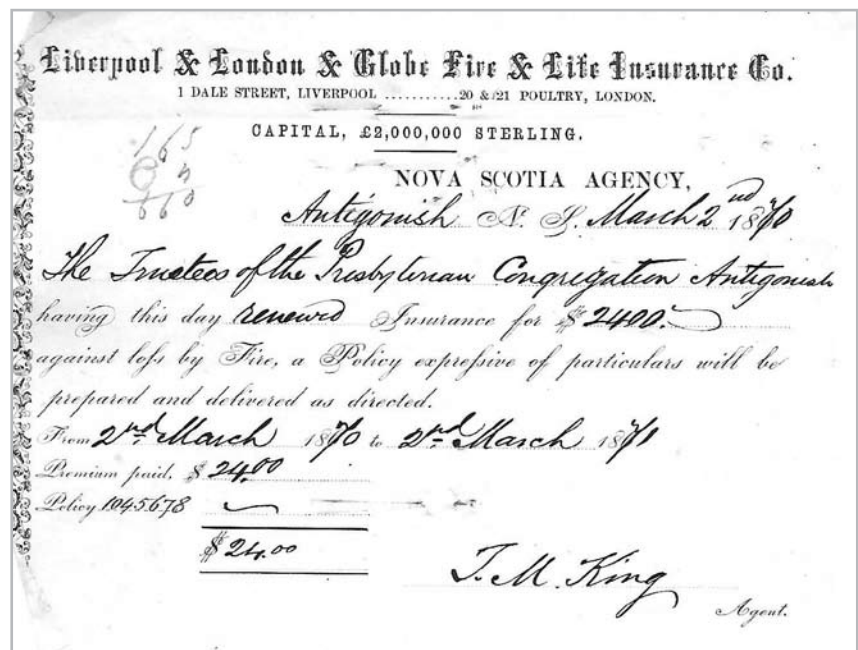 Liverpool & London & Globe Fire & Life Insurance Co.
1 DALE STREET, LIVERPOOL ...........20 & 21 POULTRY, LONDON.
CAPITAL, £2,000,000 STERLING.
165
4
660
NOVA SCOTIA AGENCY,
Antigonish N. S. March 2nd 1870
The Trustees of the Presbyterian Congregation Antigonish
having this day renewed Insurance for $ 2400.
against loſs by Fire, a Policy expreſsive of particulars will be
prepared and delivered as directed.
From 2nd March 1870 to 2nd March 1871
Premium paid, $ 24.00
Policy 1045678
$ 24.00
T. M. King
Agent.